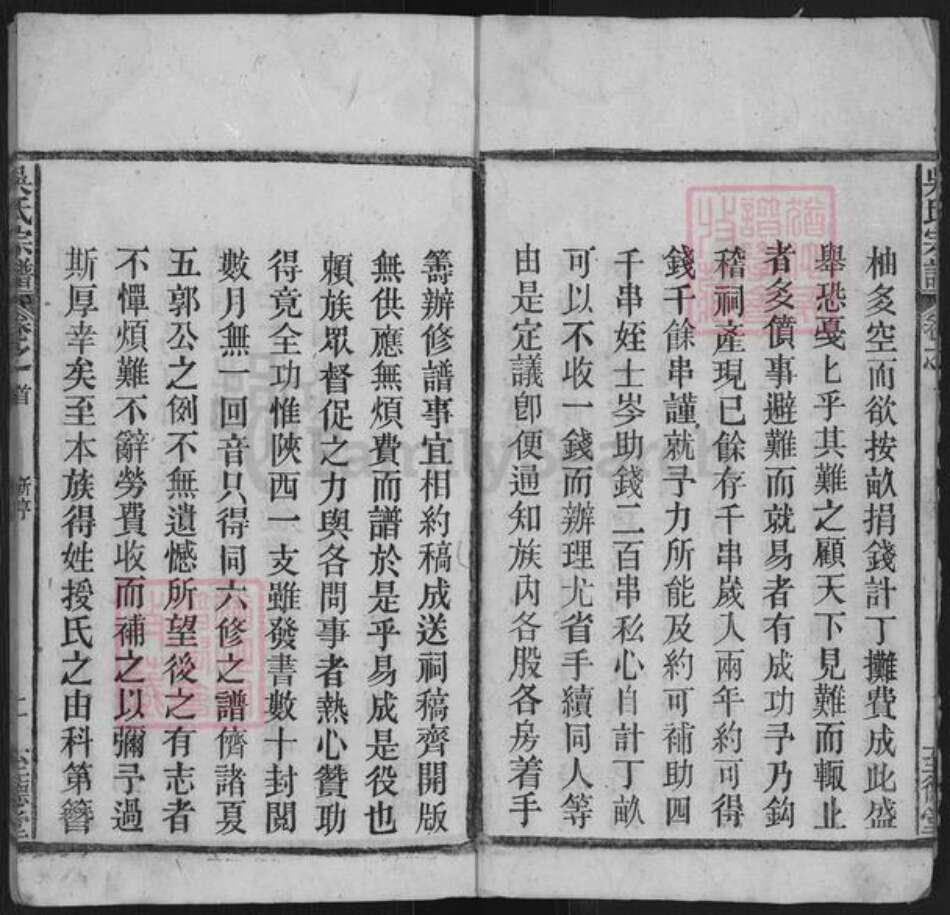 柚多空而欲按畝捐錢計丁攤費成此盛
舉恐戞上乎其難之顧天下見難而輒止
者多僨事避難而就易者有成功予乃鈎
稽祠產現已餘存千串歲入兩年約可得
錢千餘串謹就予力所能及約可補助四
千串姪士岑助錢二百串私心自計丁畝
可以不收一錢而辦理尤省手續同人等
由是定議卽便通知族內各股各房着手
籌辦修譜事宜相約稿成送祠稿齊開版
無供應無煩費而譜於是乎易成是役也
賴族眾督促之力與各問事者熱心贊功
得竟全功惟陝西一支雖發書數十封閱
數月無一回音只得同六修之譜儕諸夏
五郭公之例不無遺憾所望後之有志者
不憚煩難不辭勞費收而補之以彌予過
斯厚幸矣至本族得姓授氏之由科第簪
吳氏宗譜
卷之首
二
至德堂